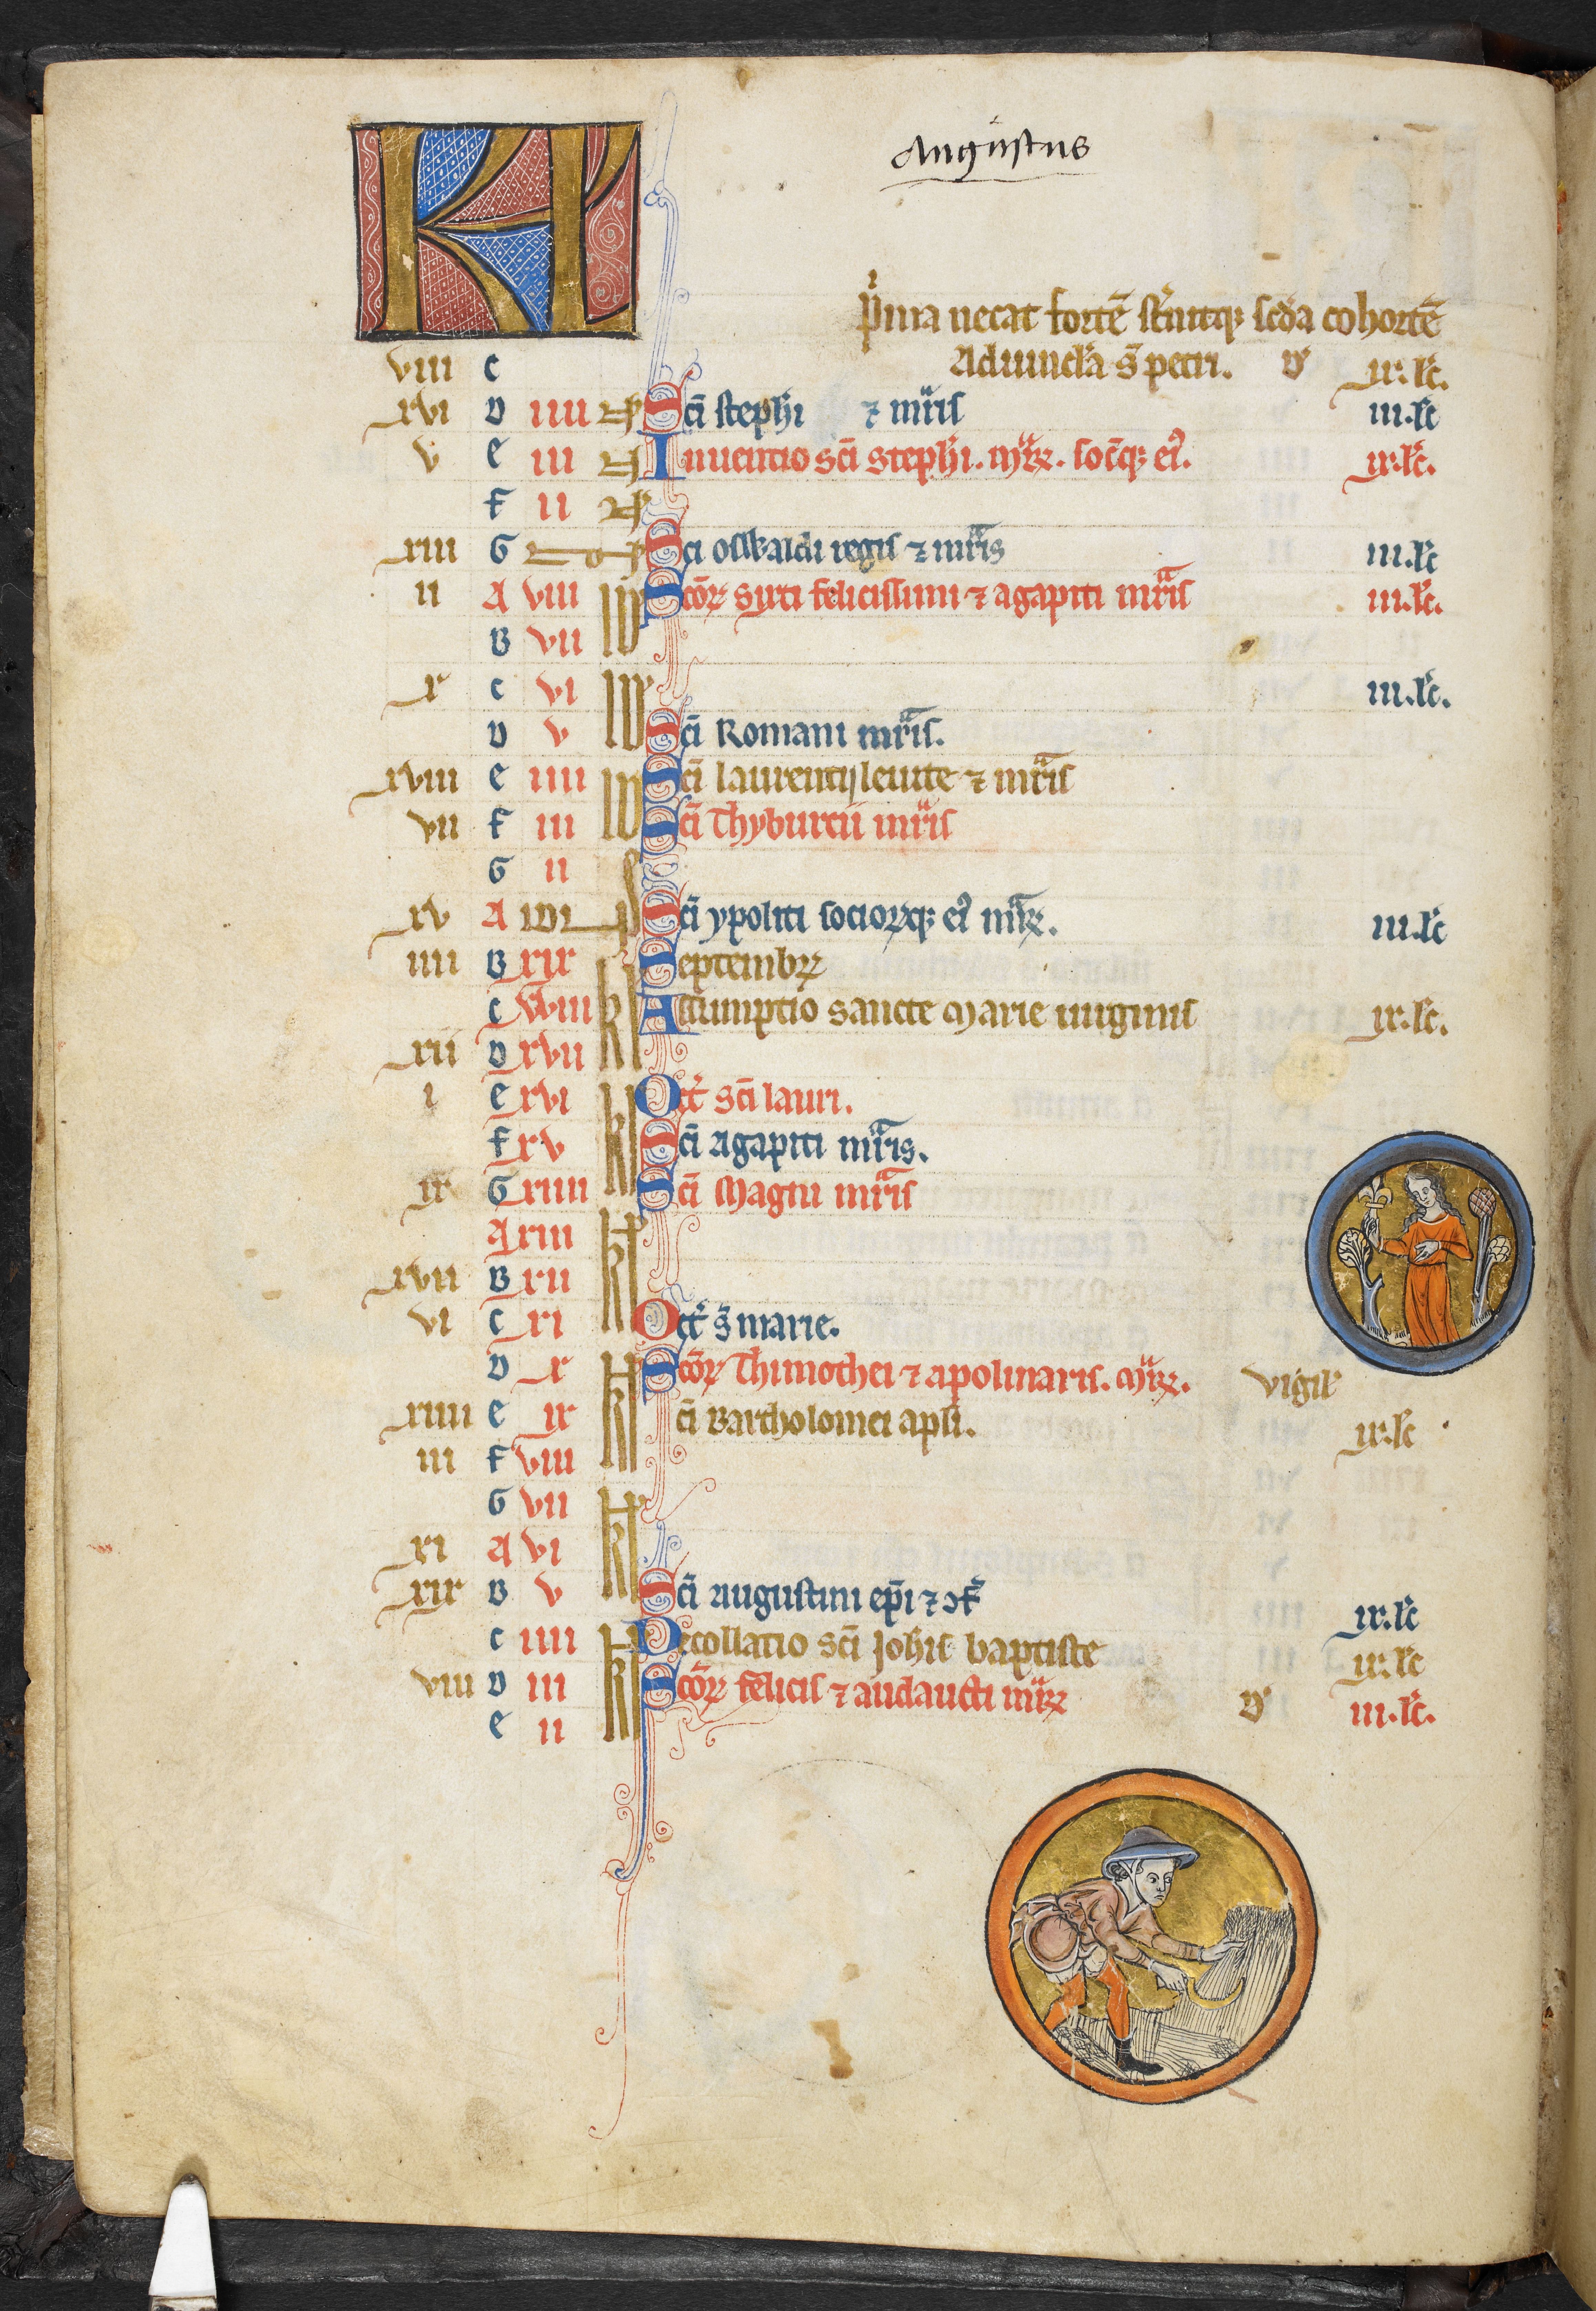 Augustus
KL
p̾ma necat fortē st̾nitq; scd̾a cohortē
viii c Aduincl̾a s̄ petri. D̾ ix. lc̄.
xvi D iiii Nō Sc̄i steph̄i ⁊ mr̄is iii.lc̄
v e iii Nō Inuentio sc̄i steph̄i. mr̄ꝝ. socꝝq; ei᾽. ix.lc̄.
f ii Nō
xiii G Non Sci oswaldi regis ⁊ mr̄is iii.lc̄
ii A viii Id Scōꝝ syxti felicissimi ⁊ agapiti mr̄is iii.lc̄.
B vii Id
x c vi Id iii.lc̄.
D v Id Sc̄i Romani mr̄is.
xviii e iiii Id Sc̄i laurentij leuite ⁊ mr̄is
vii f iii Id Sc̄i Thyburcii mr̄is
G ii
xv A IDI Sc̄i ypoliti socioꝝq; ei᾽ mr̄ꝝ. iii.lc̄
iiii B xix kl Septembꝝ
c xviii kl Assumptio sancte Marie uirginis ix.lc̄.
xii D xvii kl
i e xvi kl Oct̾ sc̄i lauri.
f xv kl Sc̄i Agapiti mr̄is.
ix G xiiii kl Sc̄i Magni mr̄is
A xiii kl
xvii B xii kl
vi c xi kl Oct̾ s̄ marie.
D x kl Scōꝝ Thimothei ⁊ apolinaris. mr̄ꝝ. vigil̾
xiiii e ix kl ci Bartholomei apl̄i. ix.lc̄
iii f viii kl
G vii kl
xi A vi kl
xix B v kl Sc̄i augustini ep̄i ⁊ ɔf̾ ix.lc̄
c iiii kl Decollatio sc̄i Joh̄is baptiste ix.lc̄
viii D iii kl Scōꝝ felicis ⁊ audaucti mr̄ꝝ D̾ iii.lc̄.
e ii kl